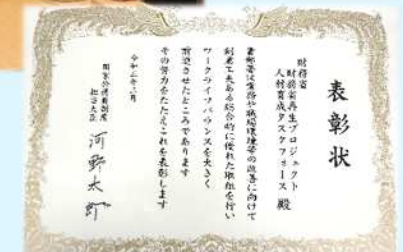 表彰状
財務省
財務省再生プロジェクト
人材育成タスクフォース 殿
貴部署は業務や職場環境等の改善に向けて
創意工夫ある総合的に優れた取組を行い
ワークライフバランスを大きく
前進させたところであります
その努力をたたえこれを表彰します
令和三年一月
国家公務員制度
担当大臣
河野太郎